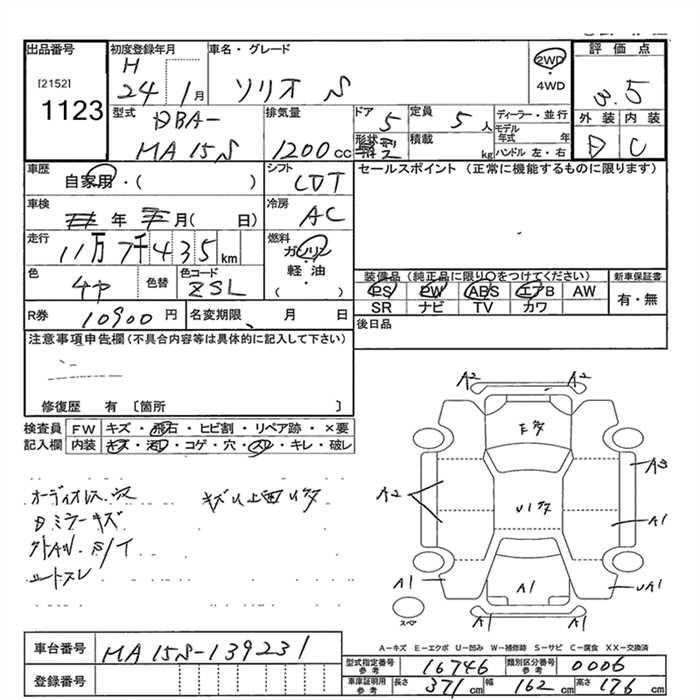 出品番号
[2152]
1123
初度登録年月
H
24 1月
車名・グレード
ソリオ S
2WD
・
4WD
評価点
3.5
外装 内装
B C
型式
DBA-
MA15S
排気量
1200cc
ドア
5
定員
5人
形状
積載
kg
ディーラー・並行
モデル年式 年
ハンドル 左・右
車歴
自家用・( )
シフト
CVT
セールスポイント (正常に機能するものに限ります)
車検
年 月( 日)
冷房
AC
走行
11万7千435km
燃料
ガソリン
・
軽・油
・
( )
色
色替
色コード
ZSL
装備品(純正品に限り○をつけてください)
PS PW ABS エアB AW
SR ナビ TV カワ
新車保証書
有・無
R券
10900円
名変期限
月 日
後日品
注意事項申告欄(不具合内容等は具体的に記入して下さい)
修復歴 有 〔箇所 〕
検査員
記入欄
FW キズ・飛石・ヒビ割・リペア跡・×要
内装 キズ・汚れ・コゲ・穴・スレ・キレ・破レ
A2 A2
A2
A3
U1
A1
A1
A1
UA1
A1 A1
スペア
A-キズ E-エクボ U-凹み W-補修跡 S-サビ C-腐食 XX-交換済
車台番号
MA15S-139231
登録番号
型式指定番号
参考
16746
類別区分番号
参考
0006
車庫証明用
参考
長さ 371cm 幅 162cm 高さ 176cm